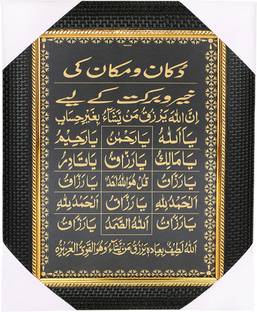 دکان و مکان کی
خیر و برکت کے لیے
اِنَّ اللّٰہَ یَرْزُقُ مَنْ یَّشَآءُ بِغَیْرِ حِسَابٍ
یَا اَللّٰہُ یَا رَحْمٰنُ یَا رَحِیْمُ
یَا مَالِکُ یَا رَزَّاقُ یَا قَادِرُ
یَا رَزَّاقُ قُلْ ھُوَ اللّٰہُ اَحَدٌ یَا رَزَّاقُ
اَلْحَمْدُ لِلّٰہِ یَا رَزَّاقُ اَلْحَمْدُ لِلّٰہِ
یَا رَزَّاقُ اَللّٰہُ الصَّمَدُ یَا رَزَّاقُ
اَللّٰہُ لَطِیْفٌ بِعِبَادِہٖ یَرْزُقُ مَنْ یَّشَآءُ وَھُوَ الْقَوِیُّ الْعَزِیْزُ